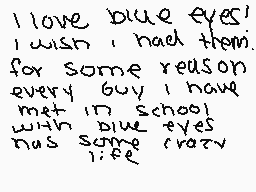 I love blue eyes!
I wish i had them.
for some reason
every Guy i have
met in school
with blue eyes
has some crazy
life